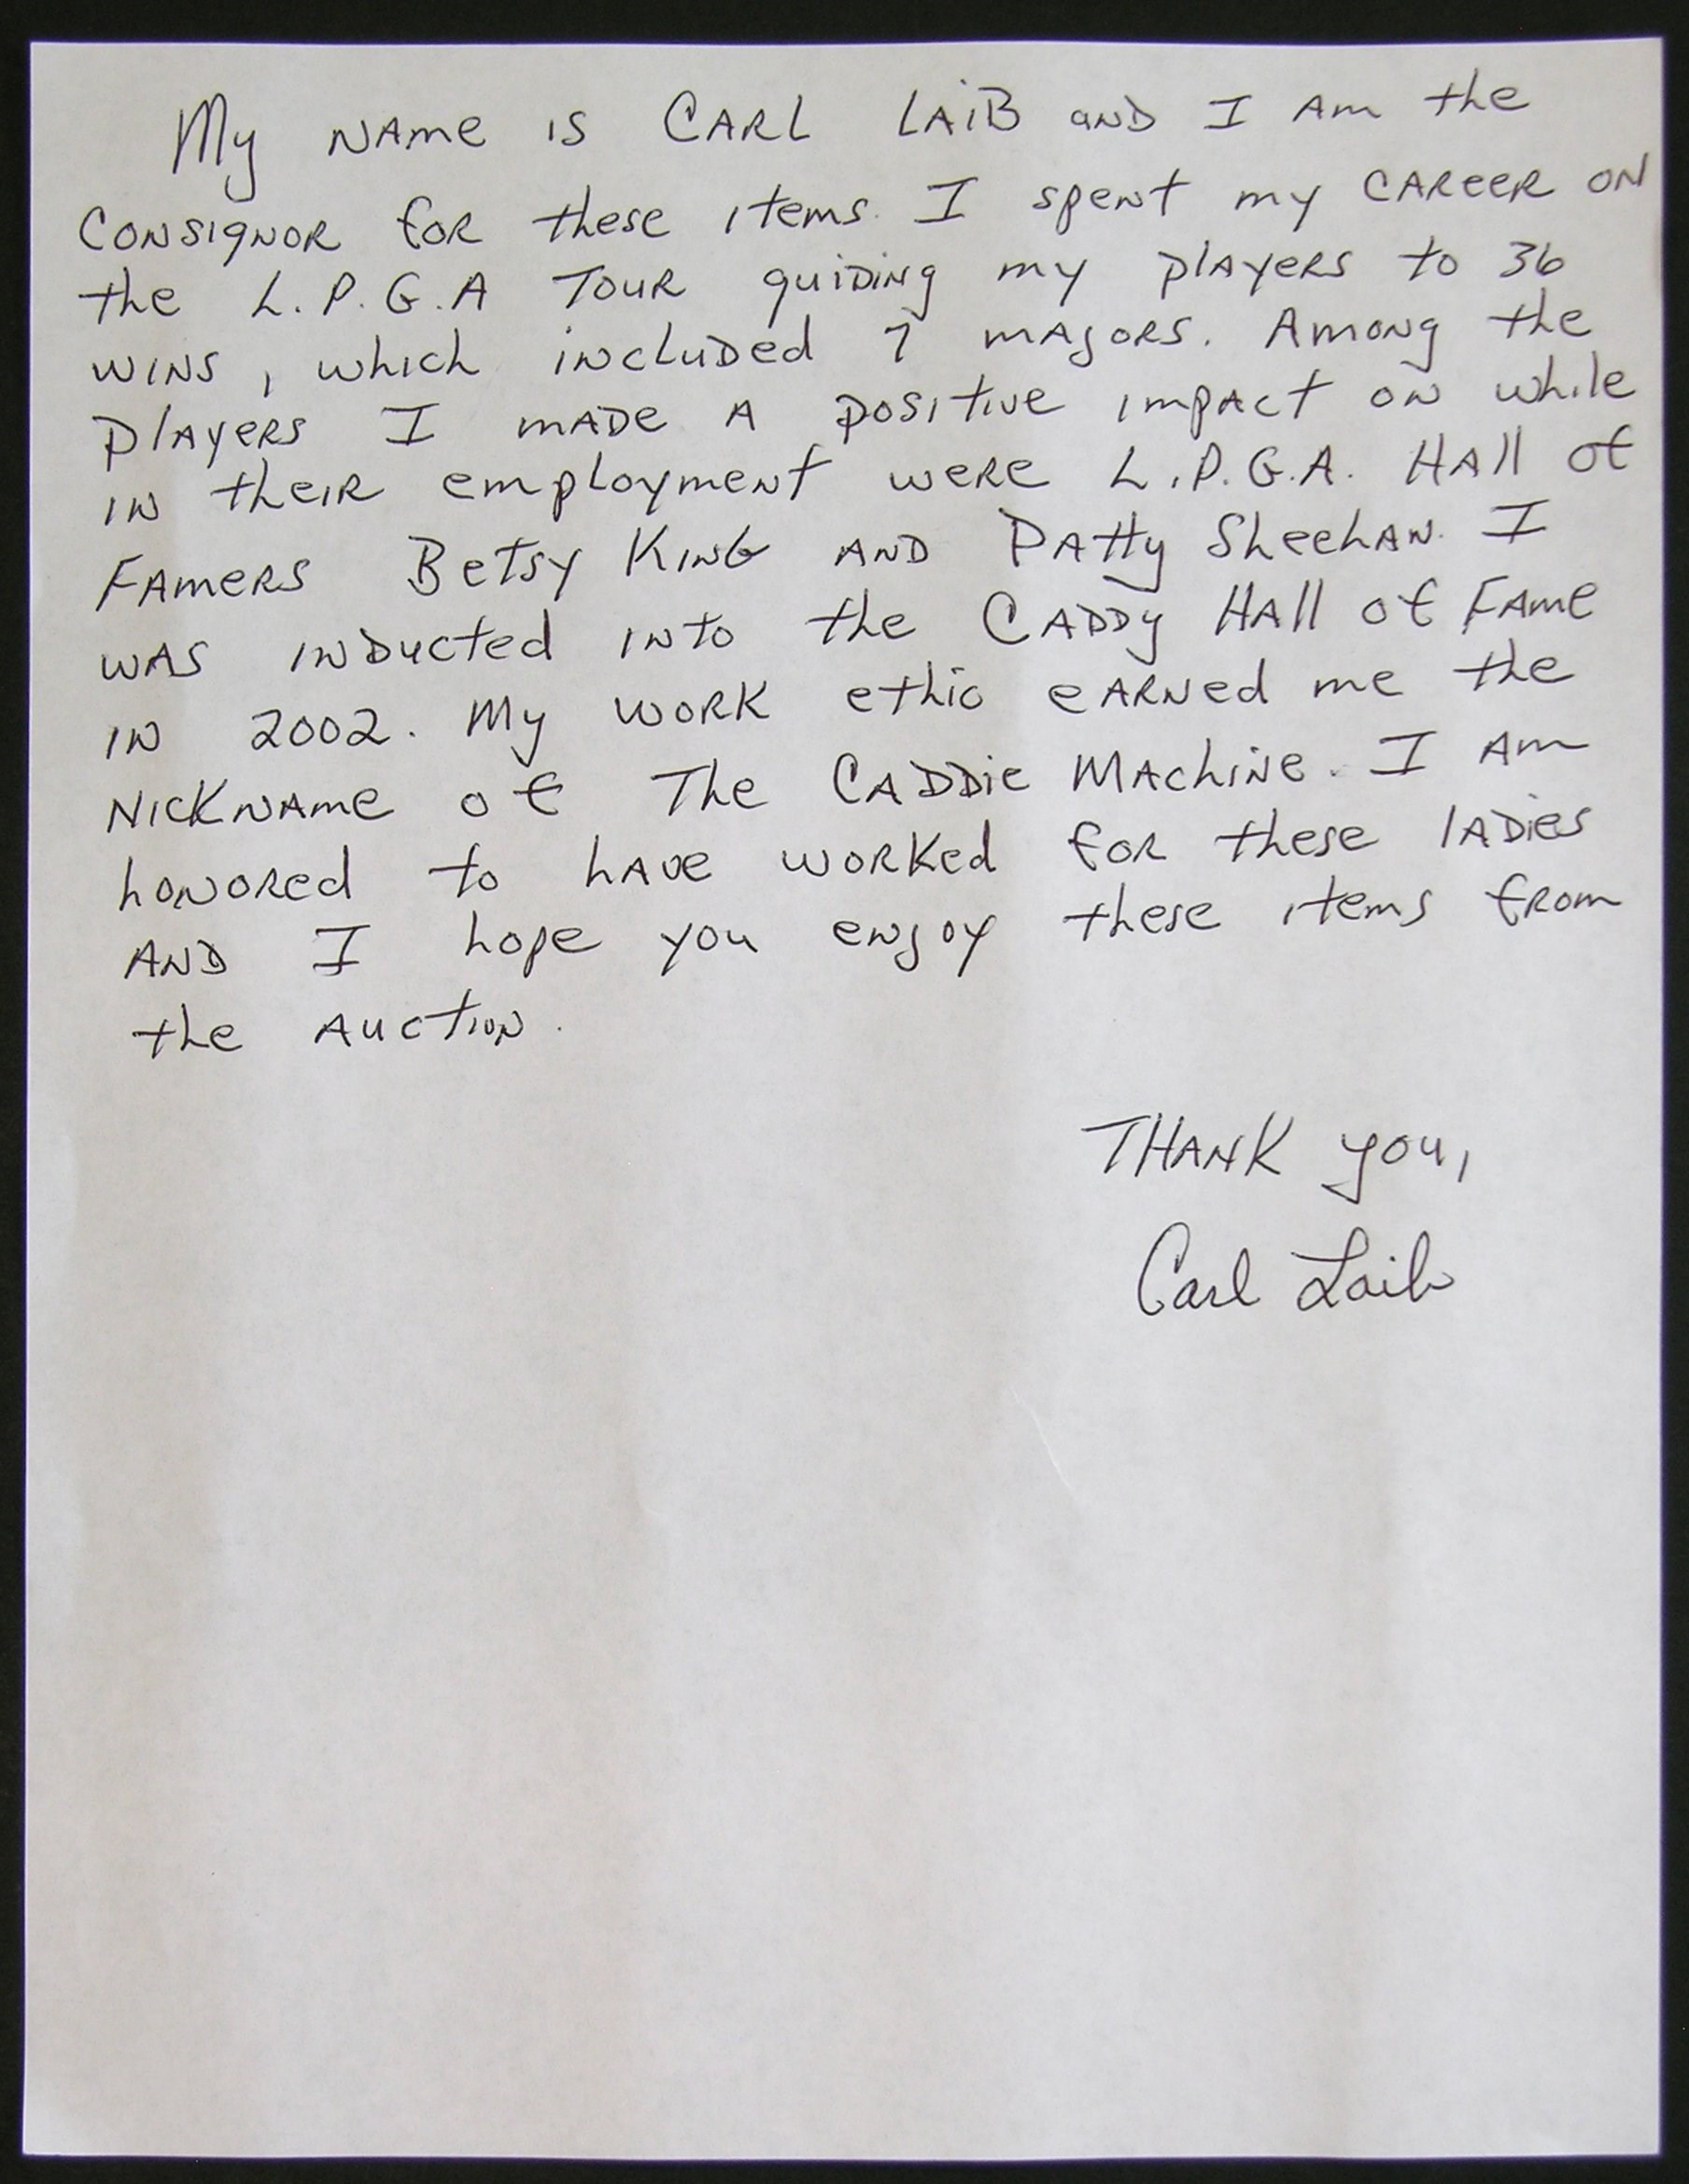 My name is Carl Laib and I am the
consignor for these items. I spent my career on
the L.P.G.A Tour guiding my players to 36
wins, which included 7 majors. Among the
players I made a positive impact on while
in their employment were L.P.G.A. Hall of
Famers Betsy King and Patty Sheehan. I
was inducted into the Caddy Hall of Fame
in 2002. My work ethic earned me the
nickname of The Caddie Machine. I am
honored to have worked for these ladies
and I hope you enjoy these items from
the auction.
Thank you,
Carl Laib